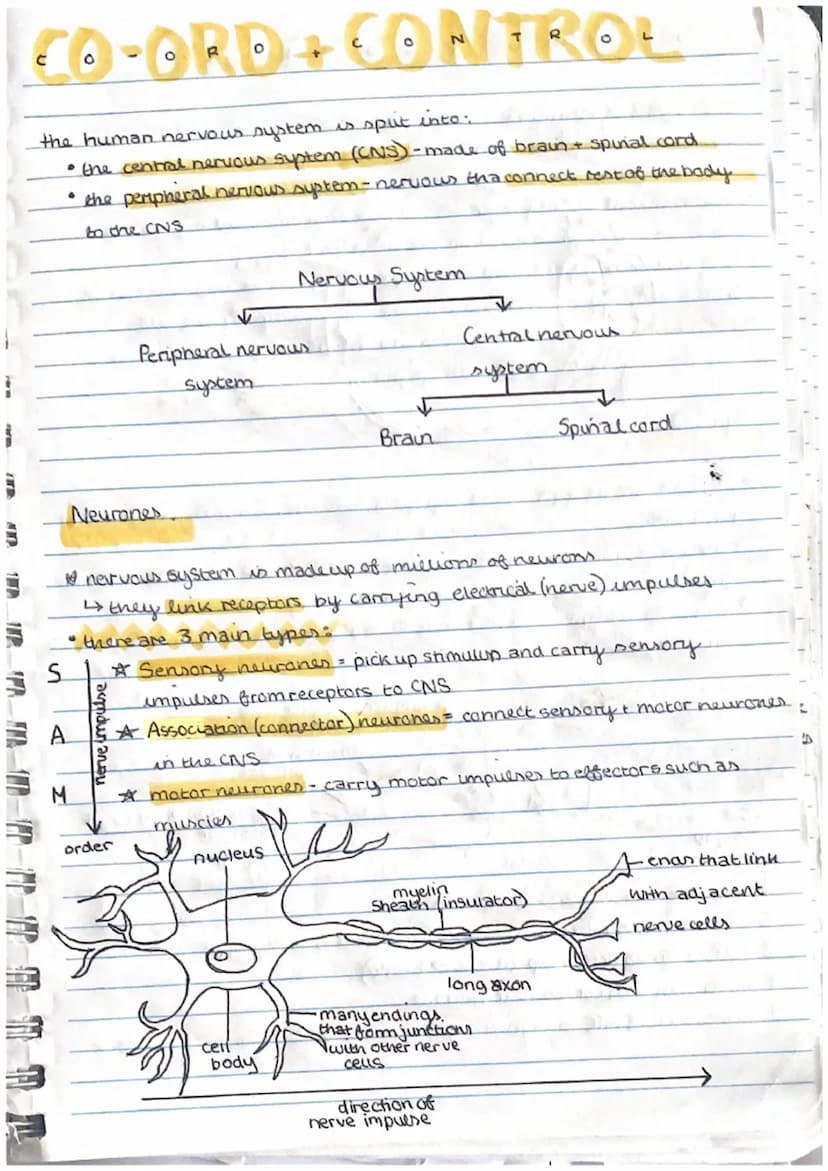 CO-ORD + CONTROL
the human nervous system is split into:
• the central nervous system (CNS) - made of brain + spinal cord
• the peripheral nervous system - nervous tha connect rest of the body
to the CNS
Nervous System
Peripheral nervous
system
Central nervous
system
Brain
Spinal cord
Neurones.
nervous system is made up of millions of neurons
↳ they link receptors by carrying electrical (nerve) impulses
• there are 3 main types:
S
A
M
nerve impulse
order
☆ Sensory neurones = pick up stimulus and carry sensory
impulses from receptors to CNS
☆ Association (connector) neurones = connect sensory + motor neurones
in the CNS
☆ motor neurones - carry motor impulses to effectors such as
muscles
nucleus
myelin
sheath (insulator)
ends that link
with adjacent
nerve cells
long axon
many endings
that form junctions
with other nerve
cells
cell
body
direction of
nerve impulse